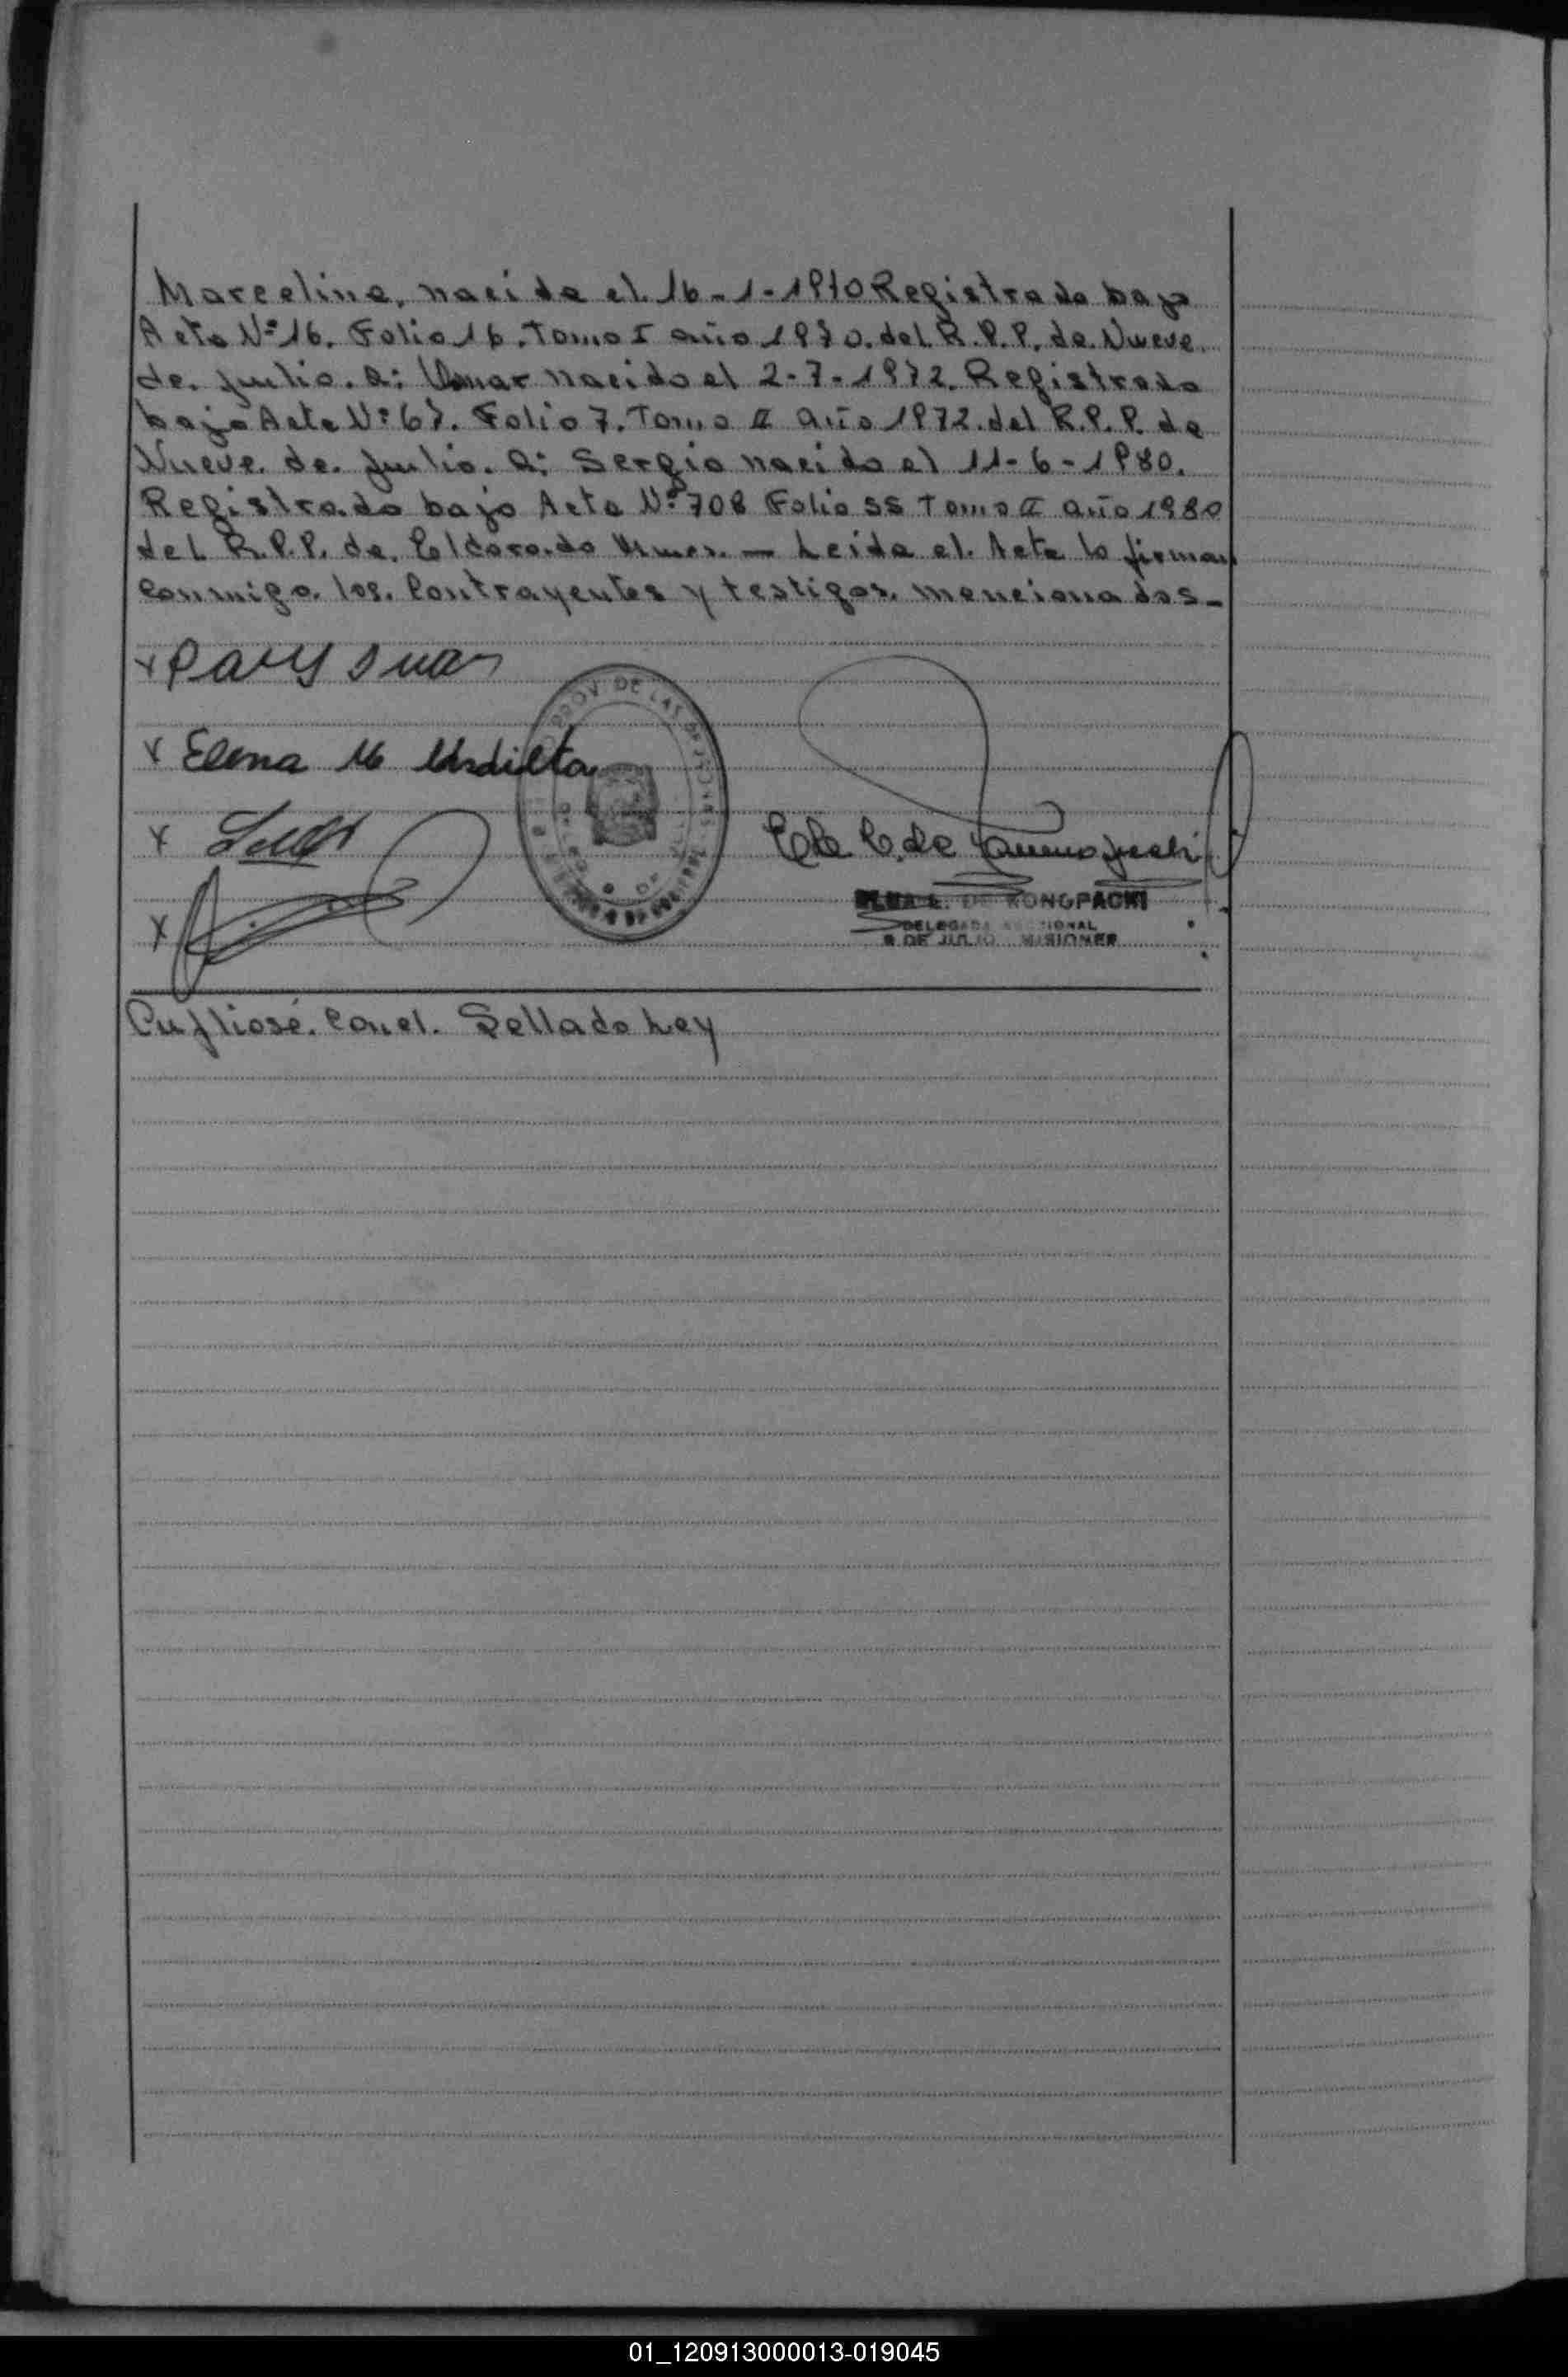 Marcelina, nacida el 16-1-1970 Registrada bajo
Acta Nº 16. Folio 16. Tomo I año 1970. del R.P.P. de Nueve
de Julio. a: Omar nacido el 2-7-1972. Registrado
bajo Acta Nº 67. Folio 7. Tomo II año 1972. del R.P.P. de
Nueve de Julio. a: Sergio nacido el 11-6-1980.
Registrado bajo Acta Nº 708 Folio 55 Tomo II año 1980
del R.P.P. de Eldorado Mnes. — Leida el Acta lo firman
conmigo. los. Contrayentes y testigos. mencionados-
x
PROV. DE LAS
x Elena M
x
x
ELSA E. DE KONOPACKI
DELEGADA SECCIONAL
9 DE JULIO MISIONES
con el. Sellado Ley
01_120913000013-019045